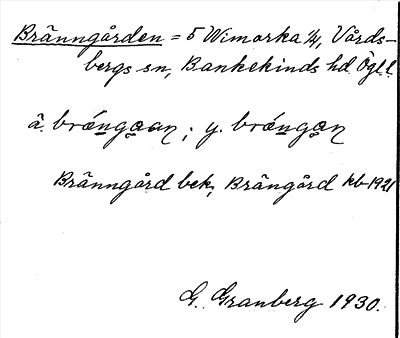 Bränngården = 5 Wimarka 1/4, Vårds-
bergs sn, Bankekinds hd Ögl.
ä. brä́ngaan; y. brä́ngan
Bränngård bek; Brängård kb 1921
G. Granberg 1930.